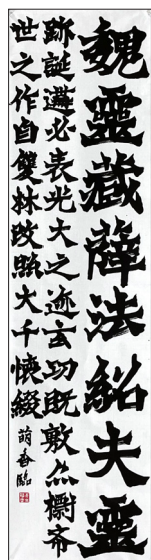 魏靈藏薛法紹夫靈
跡誕遘必表光大之迹玄功既敷亦摽希
世之作自雙林改照大千懷綴
萌香臨